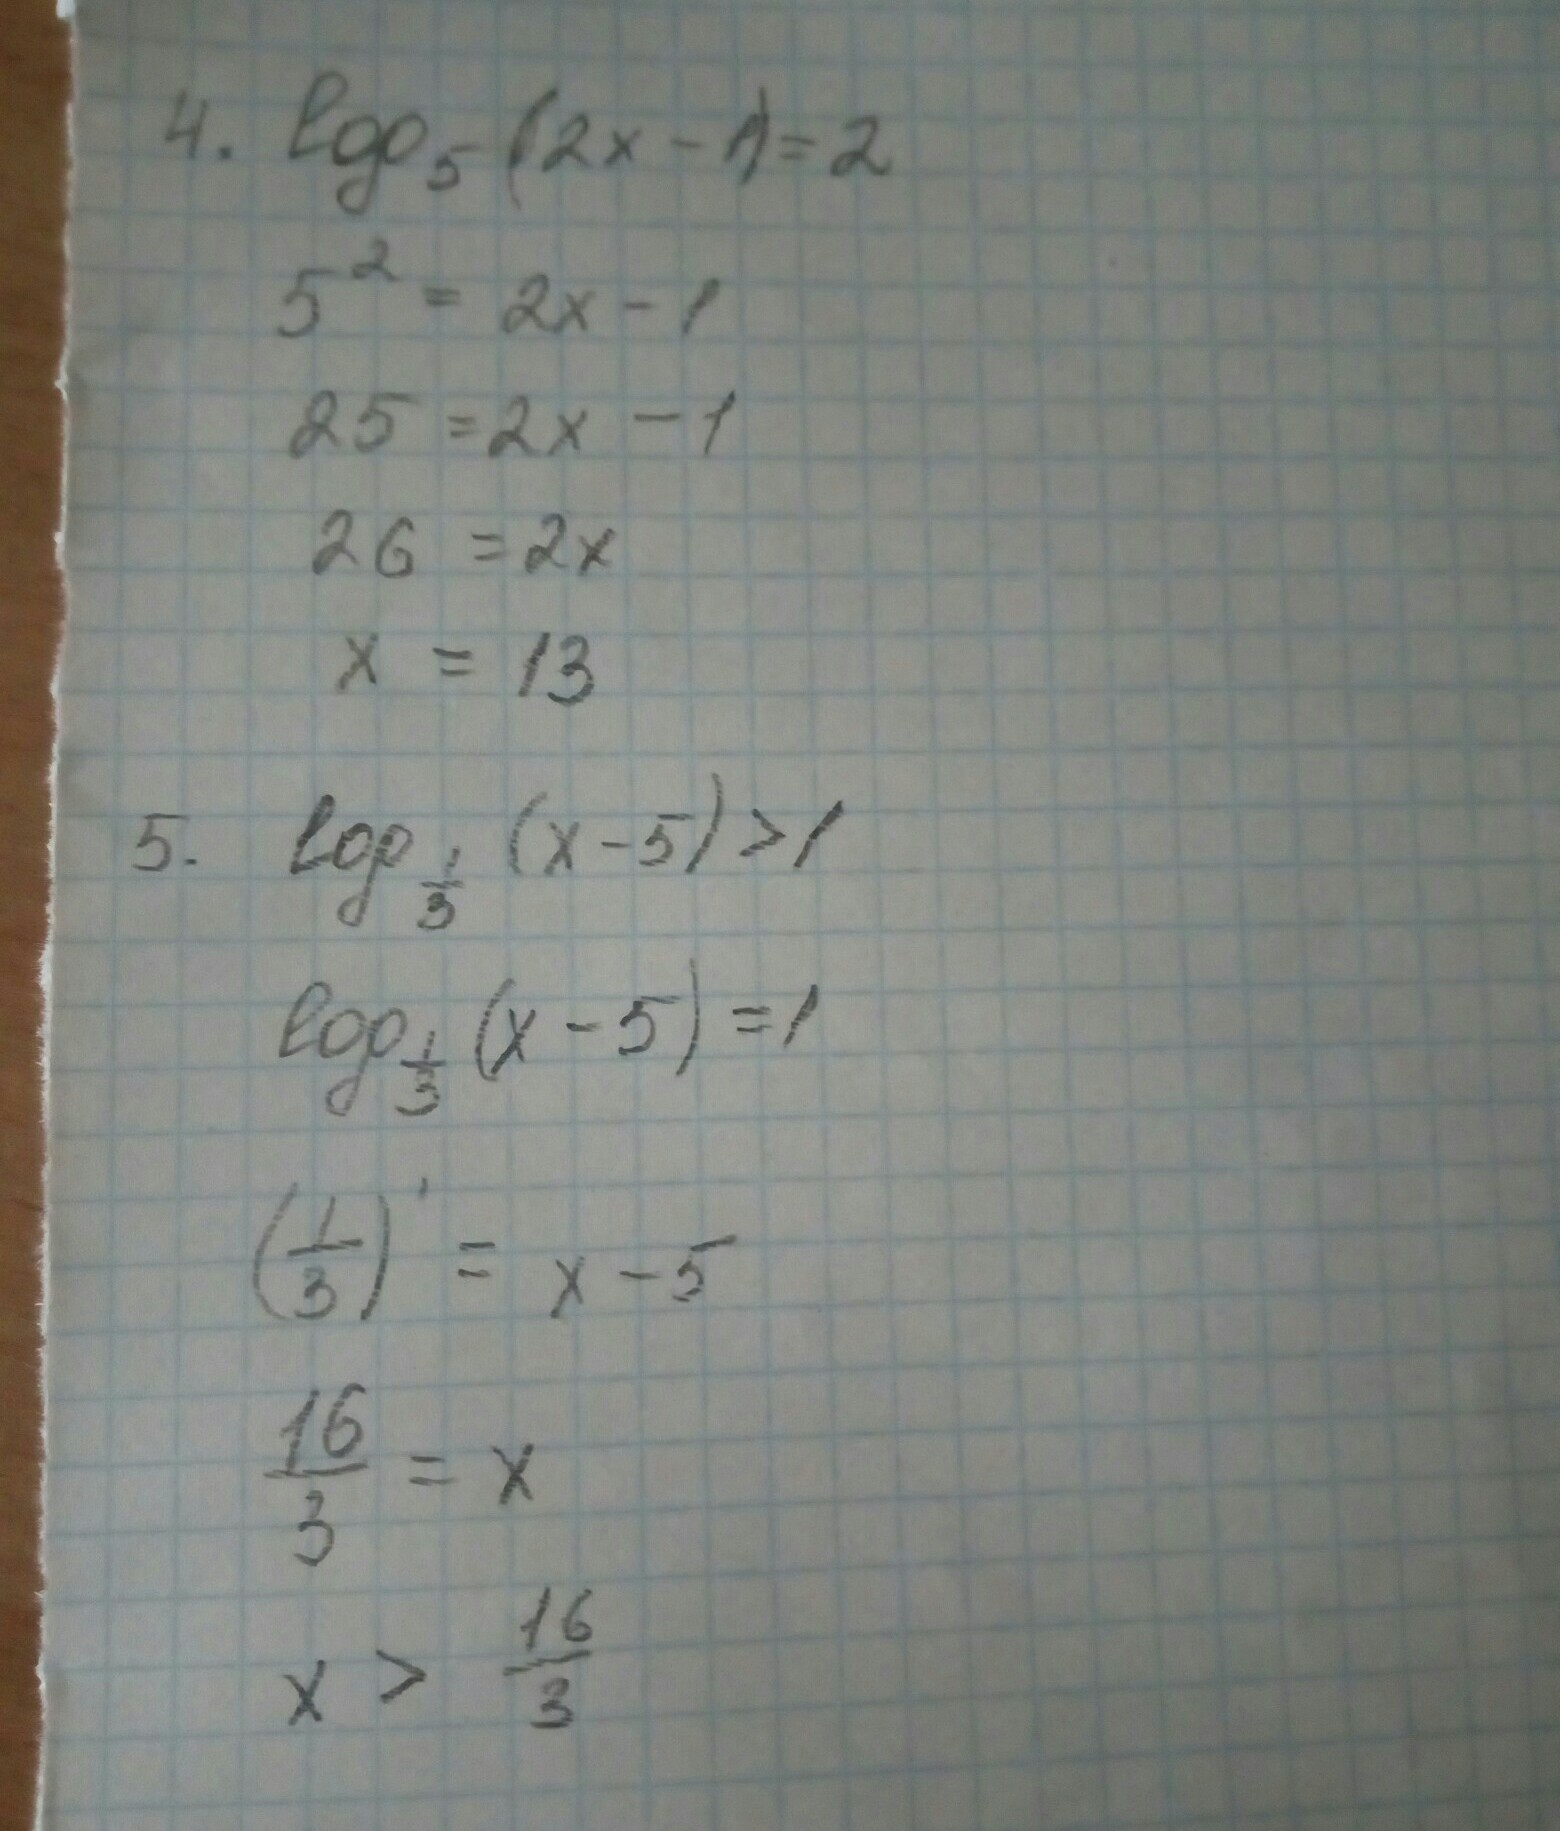 4. log₅ (2x - 1) = 2
5² = 2x - 1
25 = 2x - 1
26 = 2x
x = 13
5. log_{1/3} (x - 5) > 1
log_{1/3} (x - 5) = 1
(1/3)¹ = x - 5
16/3 = x
x > 16/3